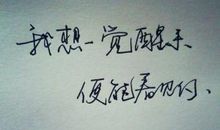 我想一觉醒来、
便能看见你、